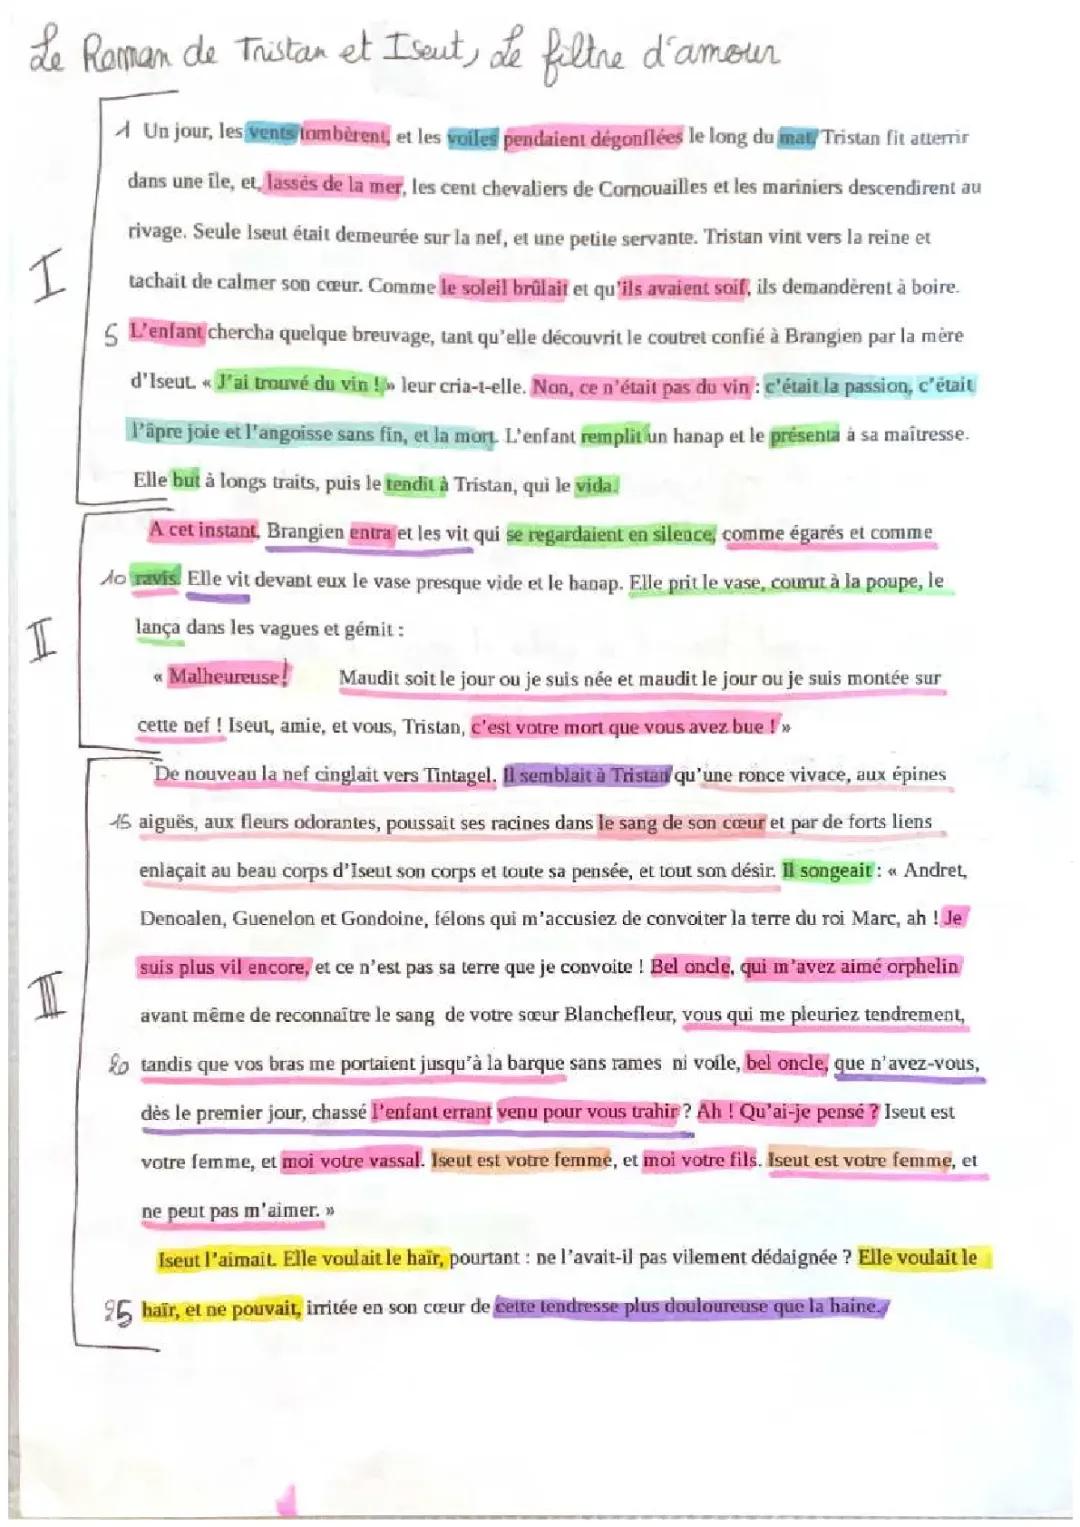 Le Roman de Tristan et Iseut, Le filtre d'amour
1 Un jour, les vents tombèrent, et les voiles pendaient dégonflées le long du mat. Tristan fit atterrir
dans une île, et, lassés de la mer, les cent chevaliers de Cornouailles et les mariniers descendirent au
I
rivage. Seule Iseut était demeurée sur la nef, et une petite servante. Tristan vint vers la reine et
tachait de calmer son cœur. Comme le soleil brûlait et qu'ils avaient soif, ils demandèrent à boire.
5 L'enfant chercha quelque breuvage, tant qu'elle découvrit le coutret confié à Brangien par la mère
d'Iseut. « J'ai trouvé du vin ! » leur cria-t-elle. Non, ce n'était pas du vin : c'était la passion, c'était
l'âpre joie et l'angoisse sans fin, et la mort. L'enfant remplit un hanap et le présenta à sa maîtresse.
Elle but à longs traits, puis le tendit à Tristan, qui le vida.
A cet instant, Brangien entra et les vit qui se regardaient en silence, comme égarés et comme
10 ravis. Elle vit devant eux le vase presque vide et le hanap. Elle prit le vase, courut à la poupe, le
II
lança dans les vagues et gémit :
« Malheureuse ! Maudit soit le jour ou je suis née et maudit le jour ou je suis montée sur
cette nef ! Iseut, amie, et vous, Tristan, c'est votre mort que vous avez bue ! »
De nouveau la nef cinglait vers Tintagel. Il semblait à Tristan qu'une ronce vivace, aux épines
15 aiguës, aux fleurs odorantes, poussait ses racines dans le sang de son cœur et par de forts liens
enlaçait au beau corps d'Iseut son corps et toute sa pensée, et tout son désir. Il songeait : « Andret,
Denoalen, Guenelon et Gondoine, félons qui m'accusiez de convoiter la terre du roi Marc, ah ! Je
III
suis plus vil encore, et ce n'est pas sa terre que je convoite ! Bel oncle, qui m'avez aimé orphelin
avant même de reconnaître le sang de votre sœur Blanchefleur, vous qui me pleuriez tendrement,
20 tandis que vos bras me portaient jusqu'à la barque sans rames ni voile, bel oncle, que n'avez-vous,
dès le premier jour, chassé l'enfant errant venu pour vous trahir ? Ah ! Qu'ai-je pensé ? Iseut est
votre femme, et moi votre vassal. Iseut est votre femme, et moi votre fils. Iseut est votre femme, et
ne peut pas m'aimer. »
Iseut l'aimait. Elle voulait le haïr, pourtant : ne l'avait-il pas vilement dédaignée ? Elle voulait le
25 haïr, et ne pouvait, irritée en son cœur de cette tendresse plus douloureuse que la haine.